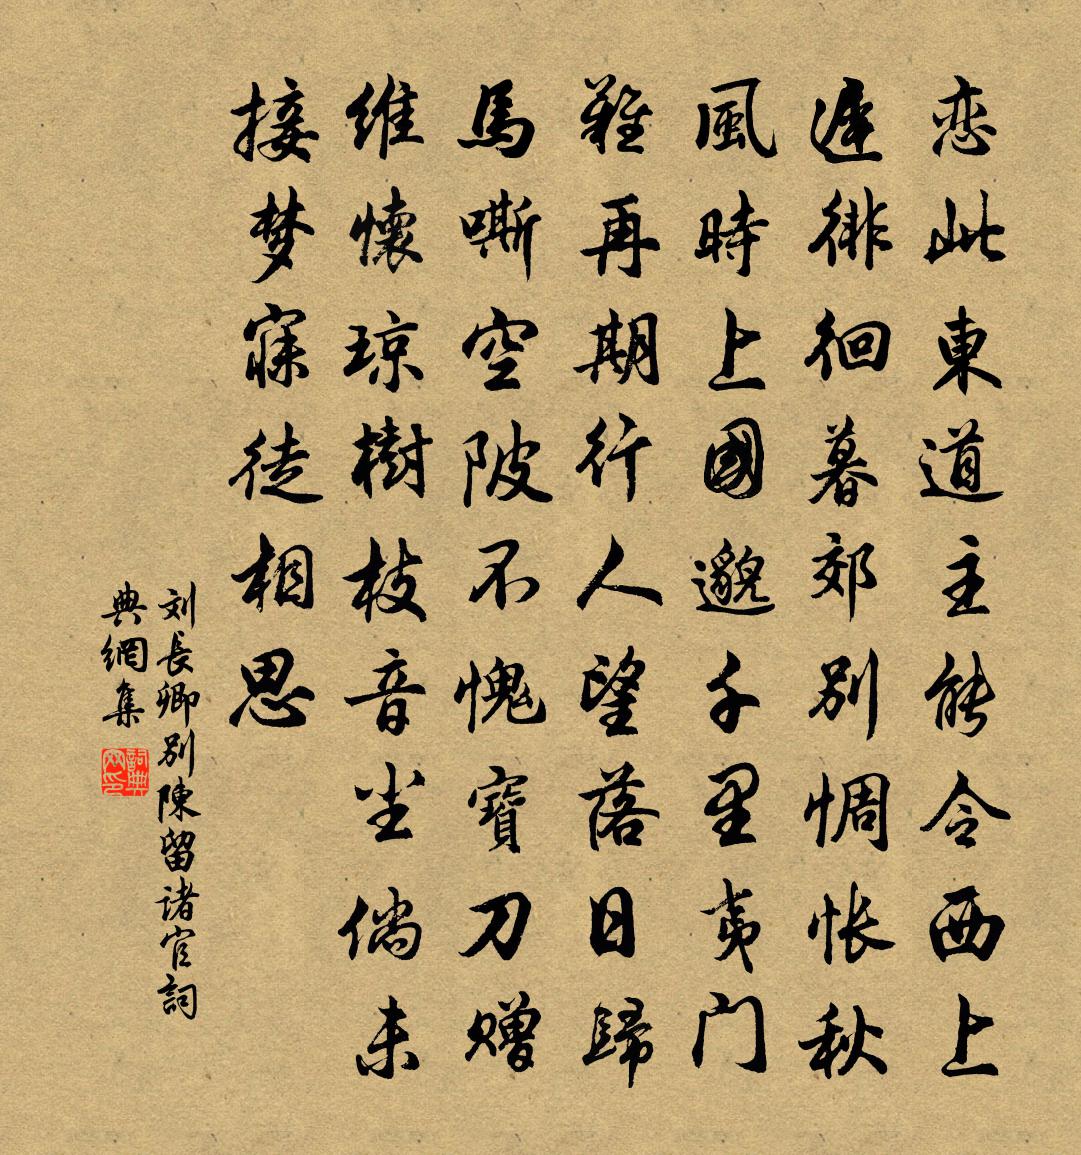 恋此東道主能令西上
遲徘徊暮郊别惆怅秋
風時上國邈千里夷门
難再期行人望落日歸
馬嘶空陂不愧寶刀赠
维懷琼樹枝音尘倘未
接梦寐徒相思
刘長卿别陳留诸官詞
典網集
詞典网印